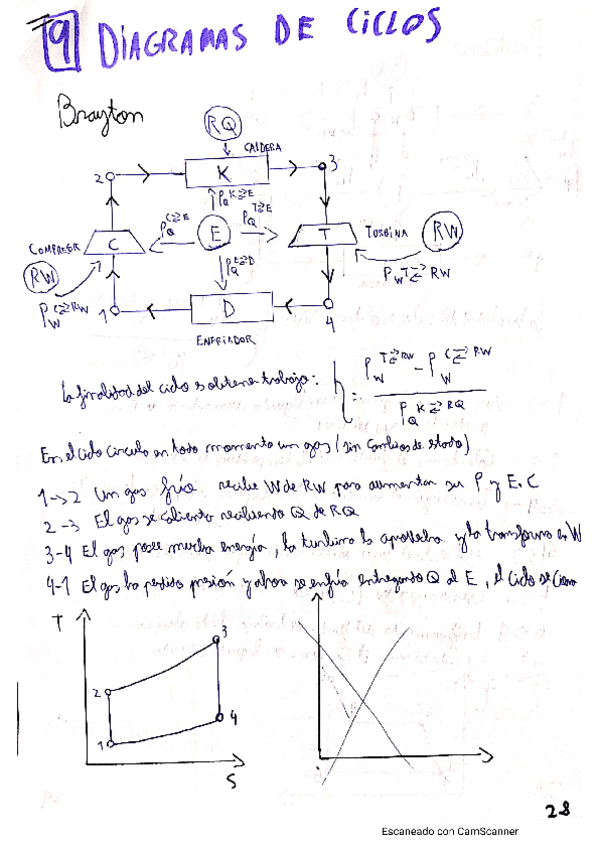 9 DIAGRAMAS DE CICLOS
Brayton
RQ
CALDERA
2 K 3
P_Q^{K⇄E}
P_Q^{C⇄E} P_Q^{T⇄E}
COMPRESOR C E T TURBINA RW
RW P_W^{T⇄RW}
P_W^{C⇄RW} P_Q^{E⇄D}
1 D 4
ENFRIADOR
La finalidad del ciclo es obtener trabajo: η = (P_W^{T⇄RW} - P_W^{C⇄RW}) / P_Q^{K⇄RQ}
En el ciclo circula en todo momento un gas (sin cambios de estado)
1→2 Un gas frío recibe W de RW para aumentar su P y E.C
2-3 El gas se calienta recibiendo Q de RQ
3-4 El gas posee mucha energía, la turbina la aprovecha y la transforma en W
4-1 El gas ha perdido presión y ahora se enfría entregando Q al E, el ciclo se cierra
T
3
2
4
1
S
28
Escaneado con CamScanner